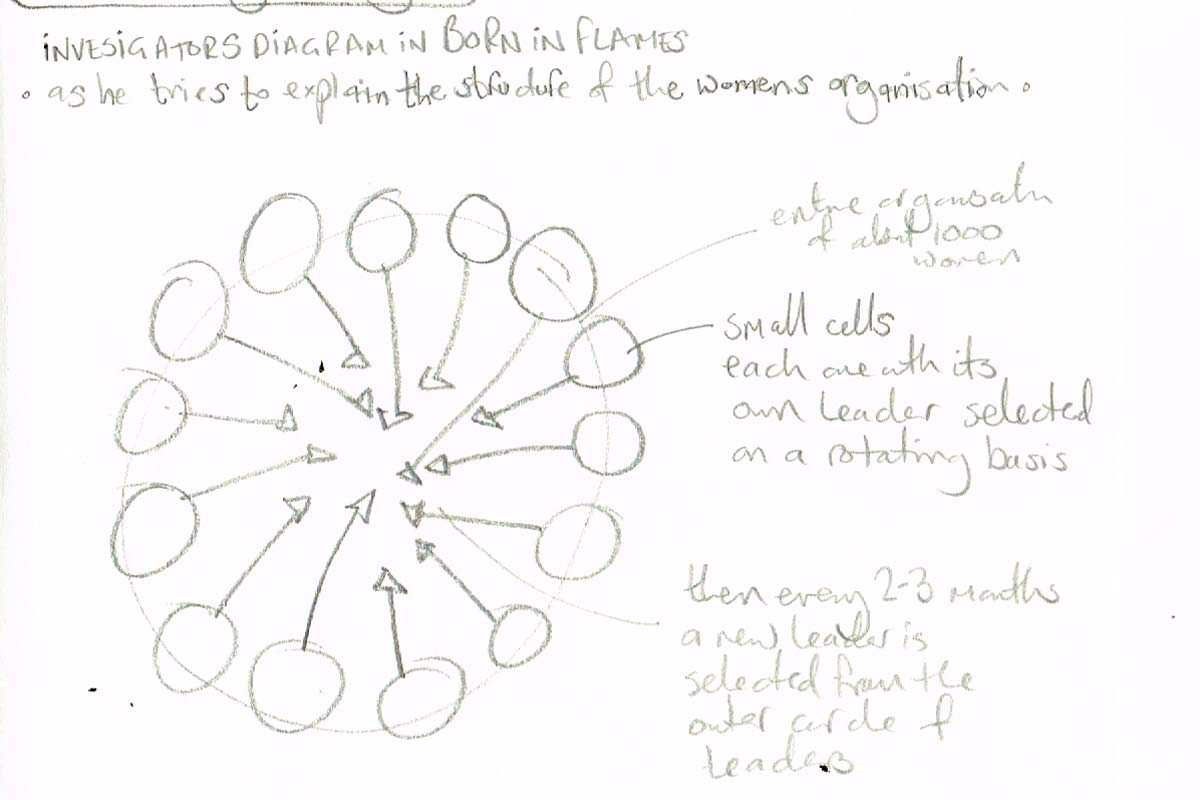 INVESIGATORS DIAGRAM IN BORN IN FLAMES
• as he tries to explain the structure of the womens organisation.
entire organisatn
of about 1000
women
small cells
each one with its
own leader selected
on a rotating basis
then every 2-3 months
a new leader is
selected from the
outer circle of
leaders